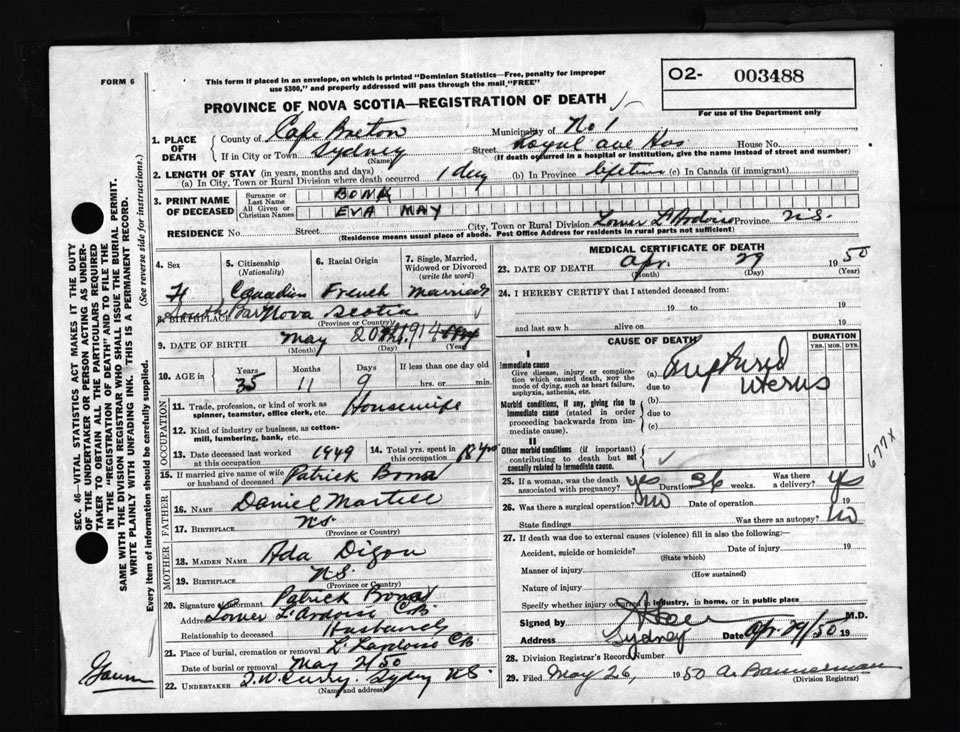 FORM 6
This form if placed in an envelope, on which is printed "Dominion Statistics—Free, penalty for improper
use $300," and properly addressed will pass through the mail "FREE"
02- 003488
For use of the Department only
PROVINCE OF NOVA SCOTIA—REGISTRATION OF DEATH
1. PLACE OF DEATH County of Cape Breton Municipality of No 1
If in City or Town Sydney (Name) Street Royal ave Hos House No.
(If death occurred in a hospital or institution, give the name instead of street and number)
2. LENGTH OF STAY (in years, months and days)
(a) In City, Town or Rural Division where death occurred 1 day (b) In Province lifetime (c) In Canada (if immigrant)
3. PRINT NAME OF DECEASED Surname or Last Name BONA
All Given or Christian Names EVA MAY
RESIDENCE No. Street City, Town or Rural Division Lower L'Ardoise Province N.S.
(Residence means usual place of abode. Post Office Address for residents in rural parts not sufficient)
4. Sex 5. Citizenship (Nationality) 6. Racial Origin 7. Single, Married, Widowed or Divorced (write the word)
Canadian French Married
8. BIRTHPLACE South Bar Nova Scotia
(Province or Country)
9. DATE OF BIRTH May 20 1914
(Month) (Day) (Year)
10. AGE in Years Months Days If less than one day old
35 11 9 hrs. or min.
OCCUPATION
11. Trade, profession, or kind of work as spinner, teamster, office clerk, etc. Housewife
12. Kind of industry or business, as cotton-mill, lumbering, bank, etc.
13. Date deceased last worked at this occupation 1949 14. Total yrs. spent in this occupation 18 yrs
15. If married give name of wife or husband of deceased Patrick Bona
FATHER
16. NAME Daniel Martell
17. BIRTHPLACE N.S.
(Province or Country)
MOTHER
18. MAIDEN NAME Ada Digou
19. BIRTHPLACE N.S.
(Province or Country)
20. Signature of informant Patrick Bona
Address Lower L'Ardoise C.B.
Relationship to deceased Husband
21. Place of burial, cremation or removal L'Ardoise C.B.
Date of burial or removal May 2/50
22. UNDERTAKER T.W. Curry. Sydney N.S.
(Name and address)
MEDICAL CERTIFICATE OF DEATH
23. DATE OF DEATH Apr. 29 1950
(Month) (Day) (Year)
24. I HEREBY CERTIFY that I attended deceased from:
19 to 19
and last saw h alive on 19
CAUSE OF DEATH
DURATION
YRS. MOS. DYS.
I
Immediate cause
Give disease, injury or complication which caused death, not the mode of dying, such as heart failure, asphyxia, asthenia, etc.
(a) Ruptured
due to Uterus
Morbid conditions, if any, giving rise to immediate cause (stated in order proceeding backwards from immediate cause).
(b)
due to
(c)
II
Other morbid conditions (if important) contributing to death but not causally related to immediate cause.
677X
25. If a woman, was the death associated with pregnancy? yes Duration 36 weeks. Was there a delivery? yes
26. Was there a surgical operation? No Date of operation 19
State findings Was there an autopsy? No
27. If death was due to external causes (violence) fill in also the following:—
Accident, suicide or homicide? Date of injury 19
(State which)
Manner of injury
(How sustained)
Nature of injury
Specify whether injury occurred in industry, in home, or in public place
Signed by M.D.
Address Sydney Date Apr 29/50 19
28. Division Registrar's Record Number
29. Filed May 26, 1950 A. Bannerman
(Division Registrar)
SEC. 46—VITAL STATISTICS ACT MAKES IT THE DUTY
OF THE UNDERTAKER OR PERSON ACTING AS UNDER-
TAKER TO OBTAIN ALL THE PARTICULARS REQUIRED
IN THE "REGISTRATION OF DEATH" AND TO FILE THE
SAME WITH THE DIVISION REGISTRAR WHO SHALL ISSUE THE BURIAL PERMIT.
WRITE PLAINLY WITH UNFADING INK. THIS IS A PERMANENT RECORD.
Every item of information should be carefully supplied. (See reverse side for instructions.)